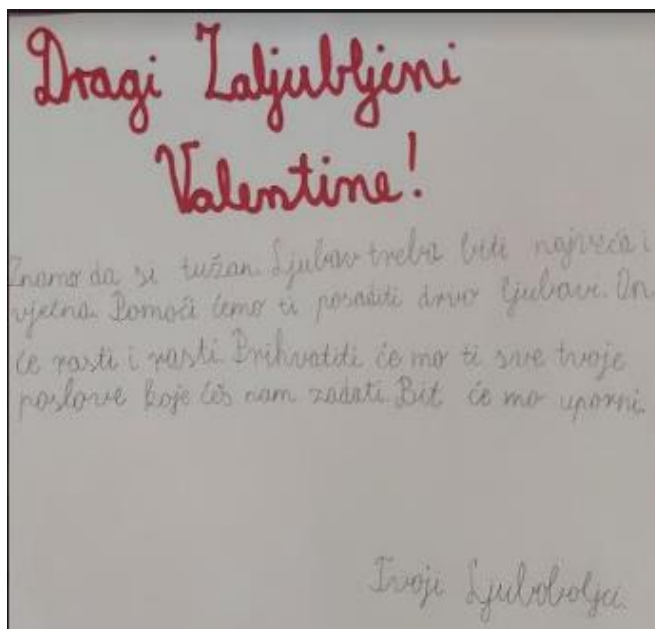 Dragi Zaljubljeni
Valentine!
Znamo da si tužan. Ljubav treba biti najveća i
vječna. Pomoći ćemo ti posaditi drvo ljubavi. On
će rasti i rasti. Prihvatiti će mo ti sve tvoje
poslove koje ćeš nam zadati. Bit će mo uporni.
Tvoji Ljuboboljci.